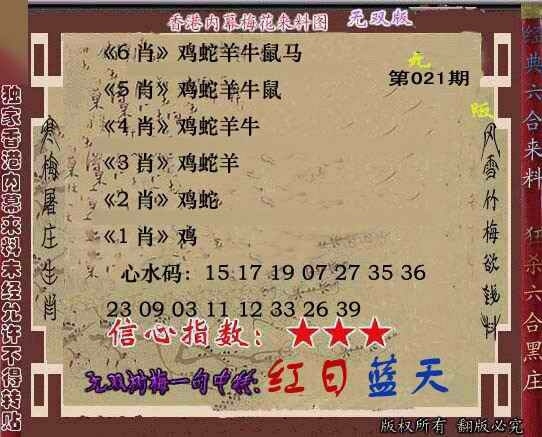 香港内幕梅花来料图 无双版
《6 肖》鸡蛇羊牛鼠马
无
第021期
《5 肖》鸡蛇羊牛鼠
版
《4 肖》鸡蛇羊牛
《3 肖》鸡蛇羊
《2 肖》鸡蛇
《1 肖》鸡
心水码：15 17 19 07 27 35 36
23 09 03 11 12 33 26 39
信心指数：★★★
无双浏梅一句中特:红日蓝天
独家香港内幕来料未经允许不得转贴
寒梅屠庄生肖
风雪竹梅欲钱料
经典六合来料 狂杀六合黑庄
版权所有 翻版必究